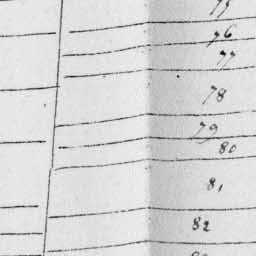 76
77
78
79
80
81
82